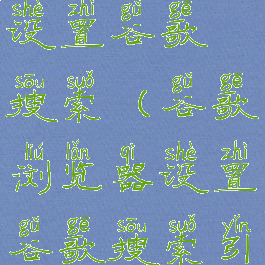 shè zhì gǔ gē
设置谷歌
sōu suǒ gǔ gē
搜索（谷歌
liú lǎn qì shè zhì
浏览器设置
gǔ gē sōu suǒ yǐn
谷歌搜索引